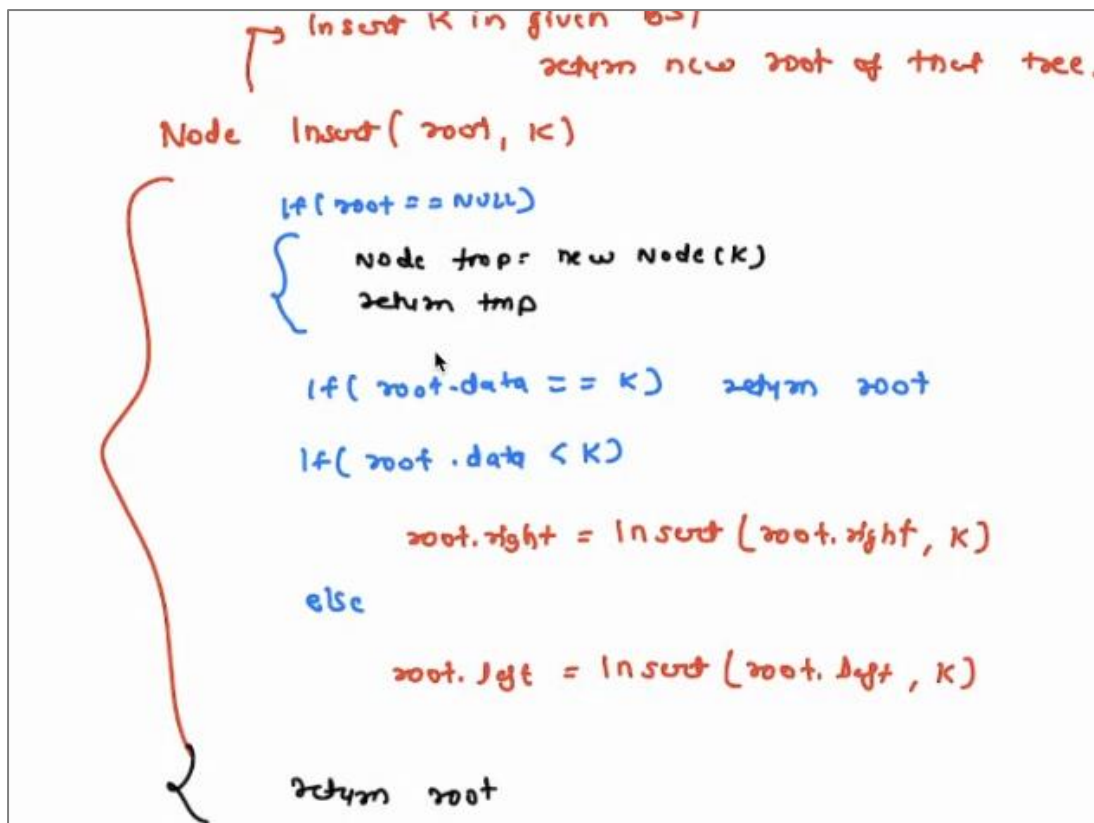 Insert K in given BST
return new root of that tree.
Node Insert( root, K)
If( root == NULL)
Node tmp= new Node(K)
return tmp
If( root.data == K) return root
If( root.data < K)
root.right = Insert(root.right, K)
else
root.left = Insert(root.left, K)
return root